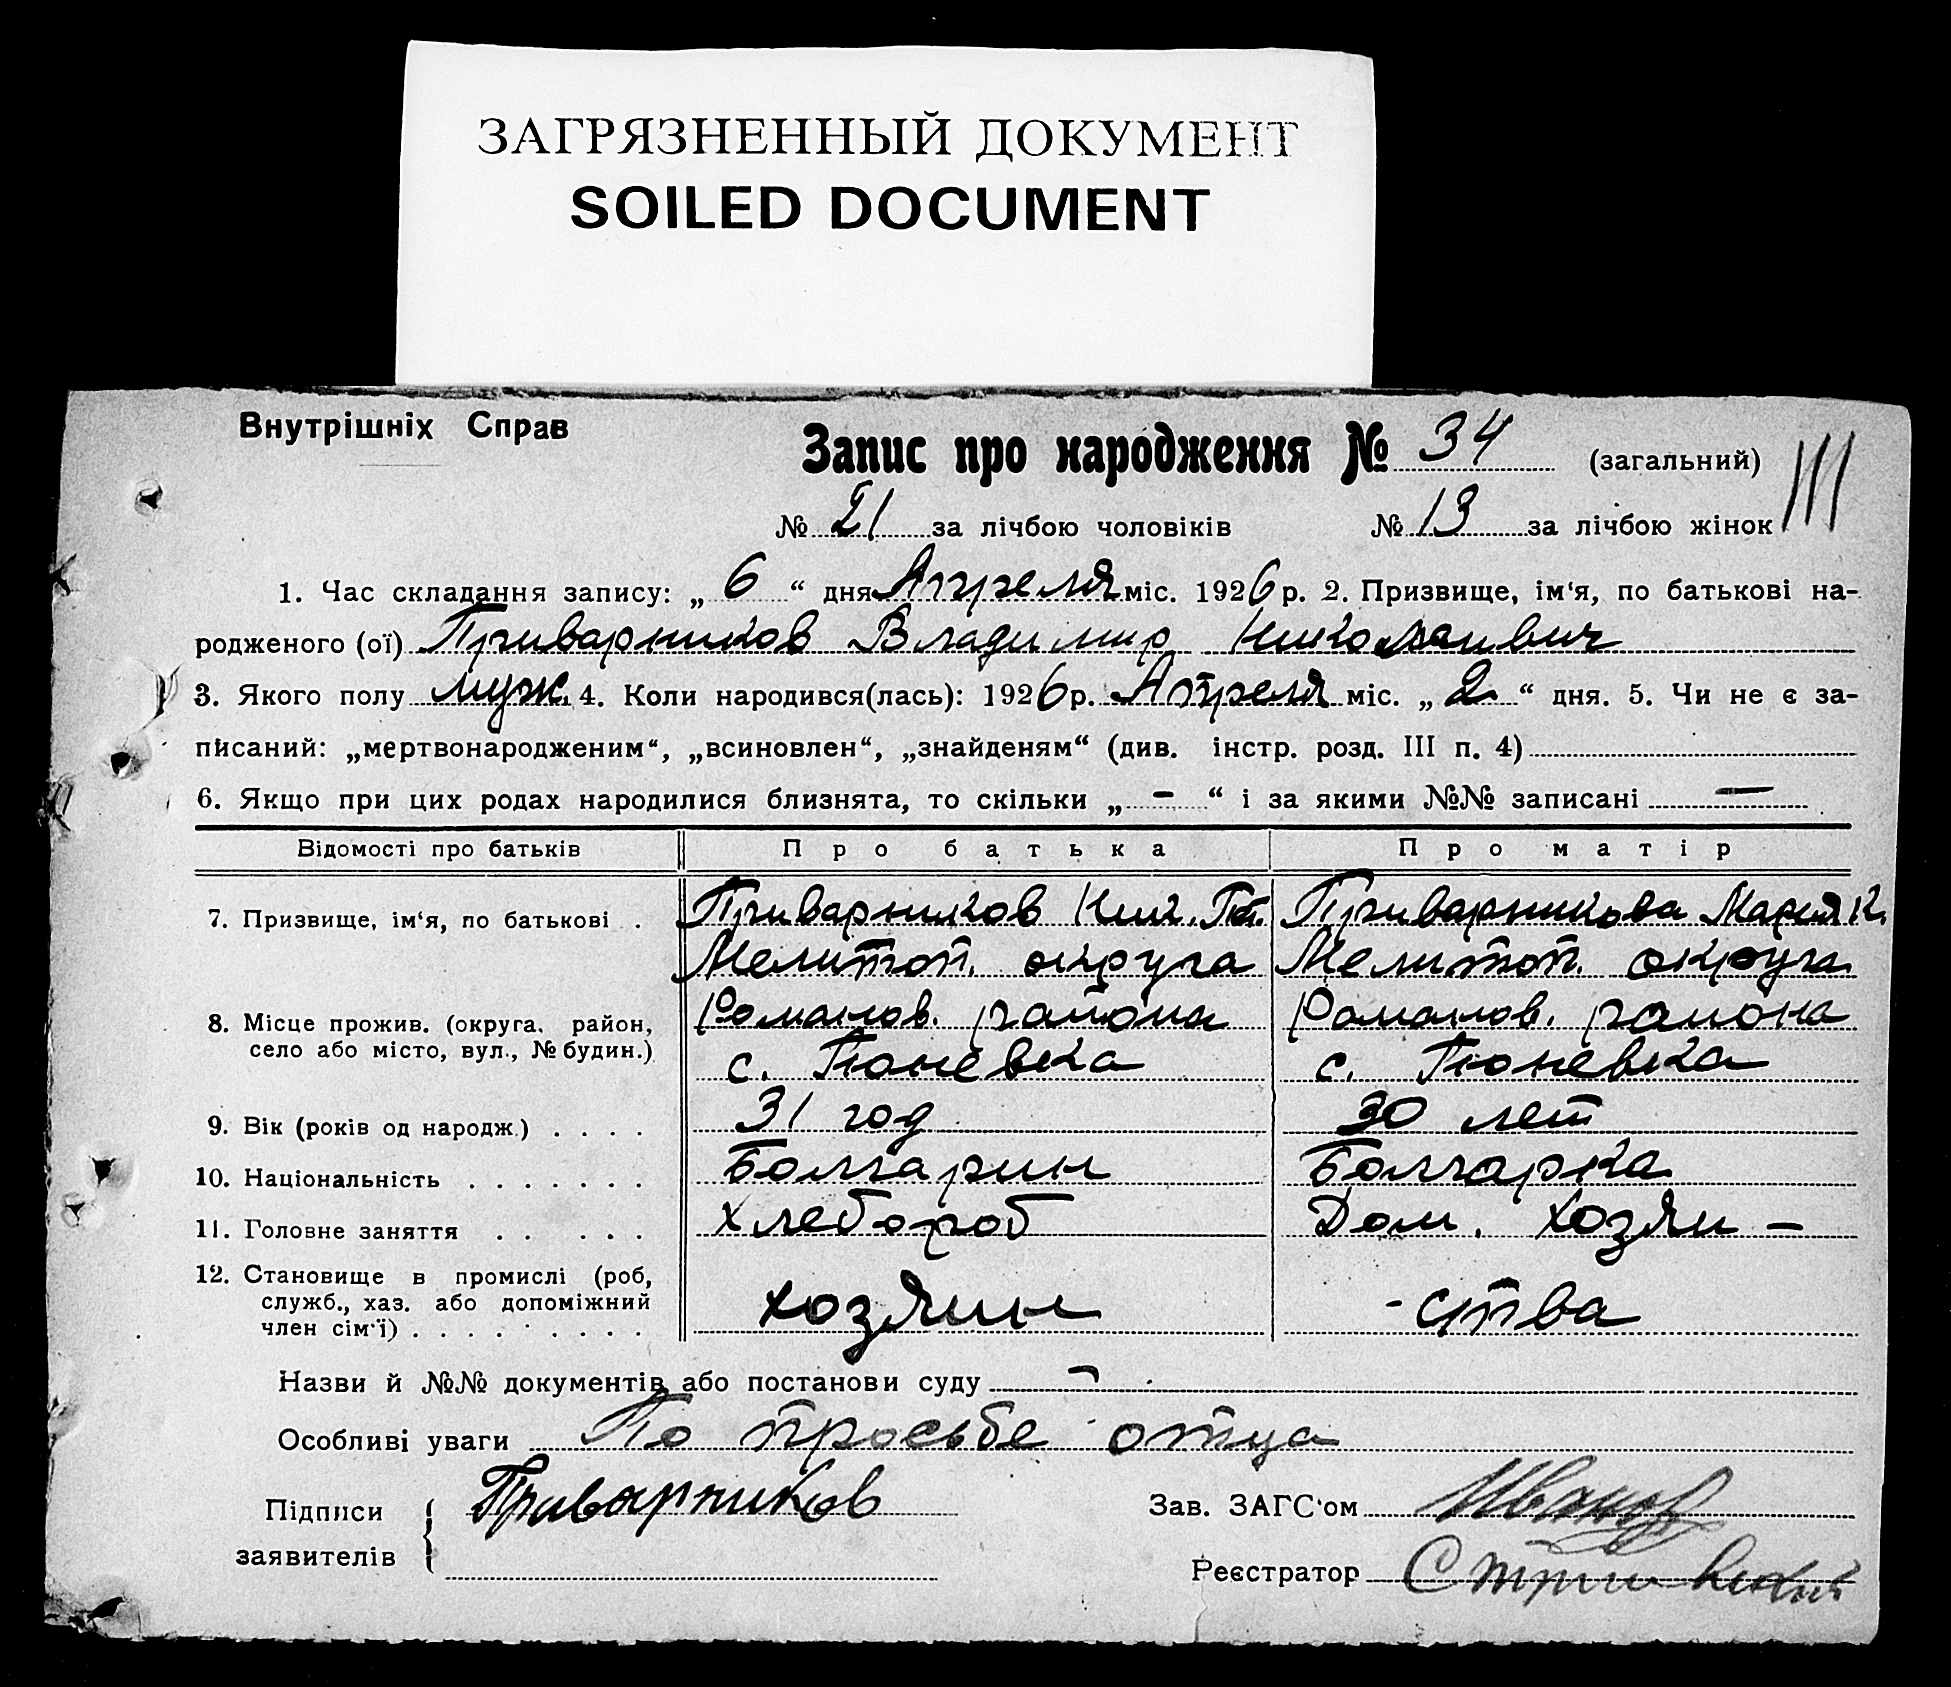 ЗАГРЯЗНЕННЫЙ ДОКУМЕНТ
SOILED DOCUMENT
Внутрішніх Справ
Запис про народження № 34 (загальний) III
№ 21 за лічбою чоловіків № 13 за лічбою жінок
1. Час складання запису: „ 6 “ дня Апреля міс. 1926 р. 2. Призвище, ім'я, по батькові на-
родженого (ої) Приварников Владимир Николаевич
3. Якого полу муж. 4. Коли народився(лась): 1926 р. Апреля міс. „ 2 “ дня. 5. Чи не є за-
писаний: „мертвонародженим“, „всиновлен“, „знайденям“ (див. інстр. розд. III п. 4)
6. Якщо при цих родах народилися близнята, то скільки „ - “ і за якими №№ записані —
Відомості про батьків Про батька Про матір
7. Призвище, ім'я, по батькові . Приварников Ник. Приварникова Мария К.
Мелитоп. округа Мелитоп. округа
8. Місце прожив. (округа, район, Романов. района Романов. района
село або місто, вул., № будин.) с. Гюневка с. Гюневка
9. Вік (років од народж.) . . . . 31 год 30 лет
10. Національність . . . . . . . Болгарин Болгарка
11. Головне заняття . . . . . Хлебороб Дом. хозяй-
12. Становище в промислі (роб,
служб., хаз. або допоміжний хозяин -ства
член сім'ї) . . . . . . . . .
Назви й №№ документів або постанови суду -
Особливі уваги По просьбе отца
Підписи Приварников Зав. ЗАГС'ом Иванов
заявителів Реєстратор